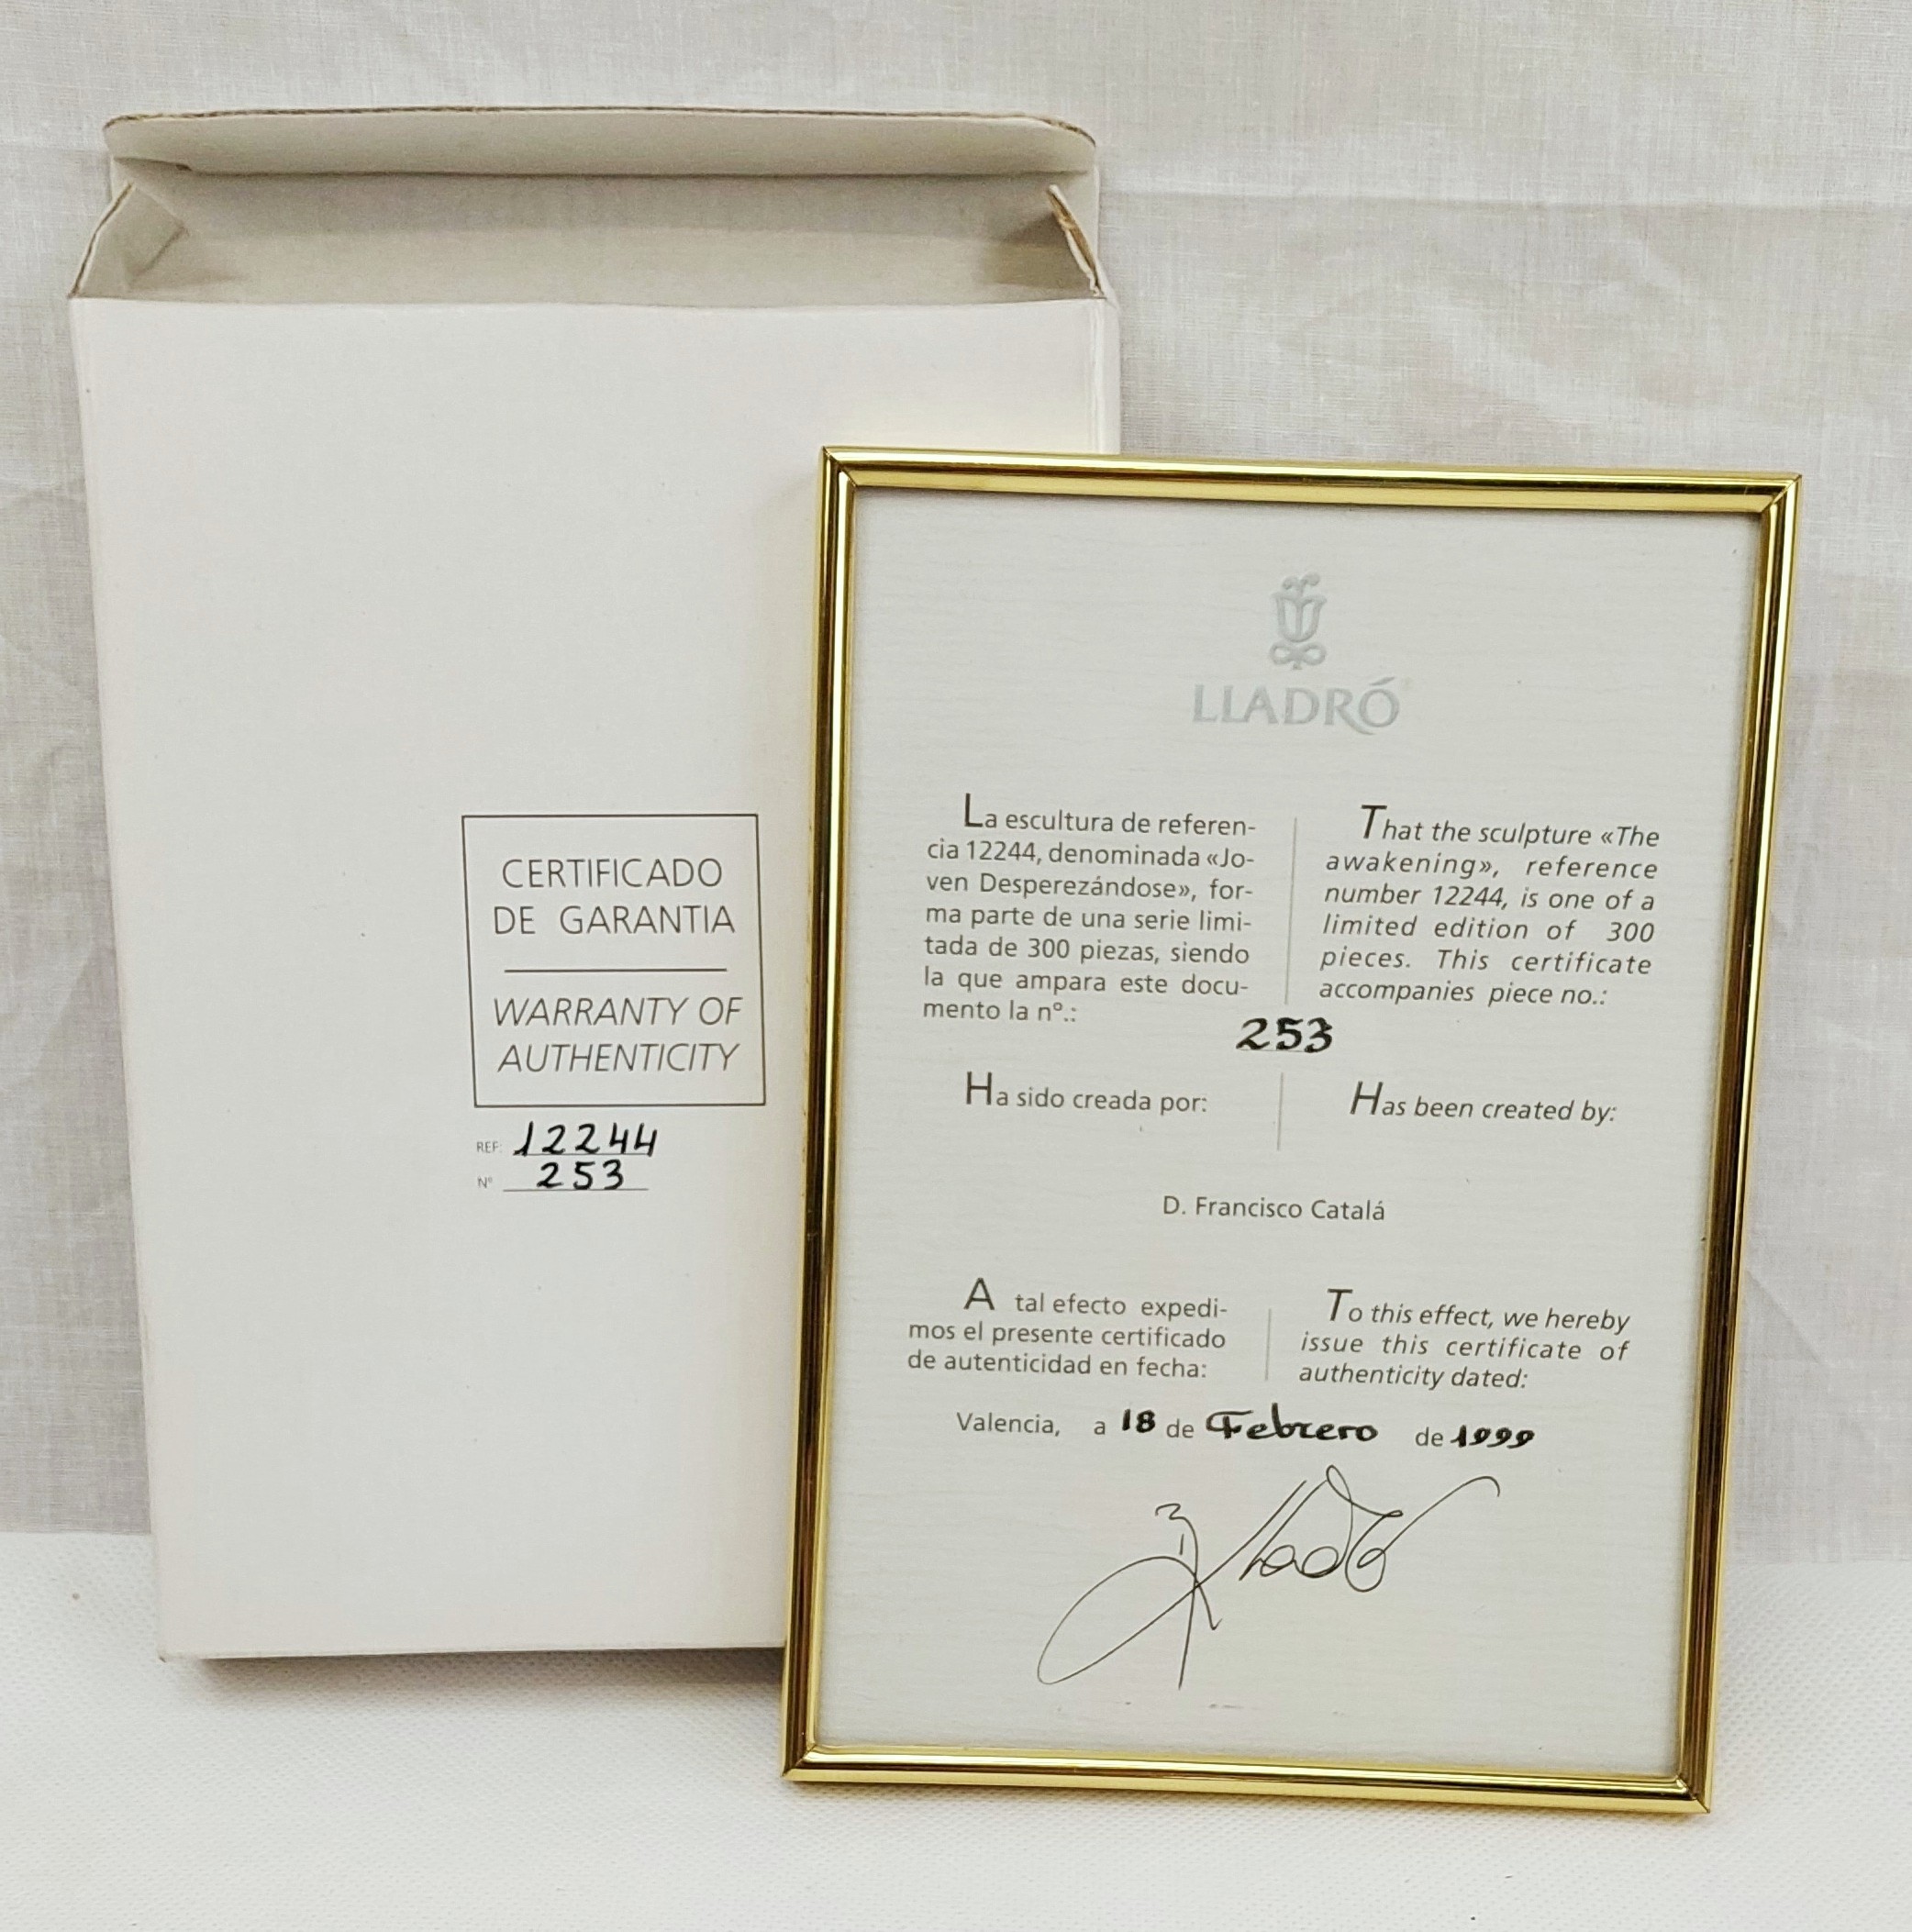 CERTIFICADO
DE GARANTIA
WARRANTY OF
AUTHENTICITY
REF: 12244
Nº 253
LLADRÓ
La escultura de referen-
cia 12244, denominada «Jo-
ven Desperezándose», for-
ma parte de una serie limi-
tada de 300 piezas, siendo
la que ampara este docu-
mento la nº.:
That the sculpture «The
awakening», reference
number 12244, is one of a
limited edition of 300
pieces. This certificate
accompanies piece no.:
253
Ha sido creada por:
Has been created by:
D. Francisco Catalá
A tal efecto expedi-
mos el presente certificado
de autenticidad en fecha:
To this effect, we hereby
issue this certificate of
authenticity dated:
Valencia, a 18 de Febrero de 1999